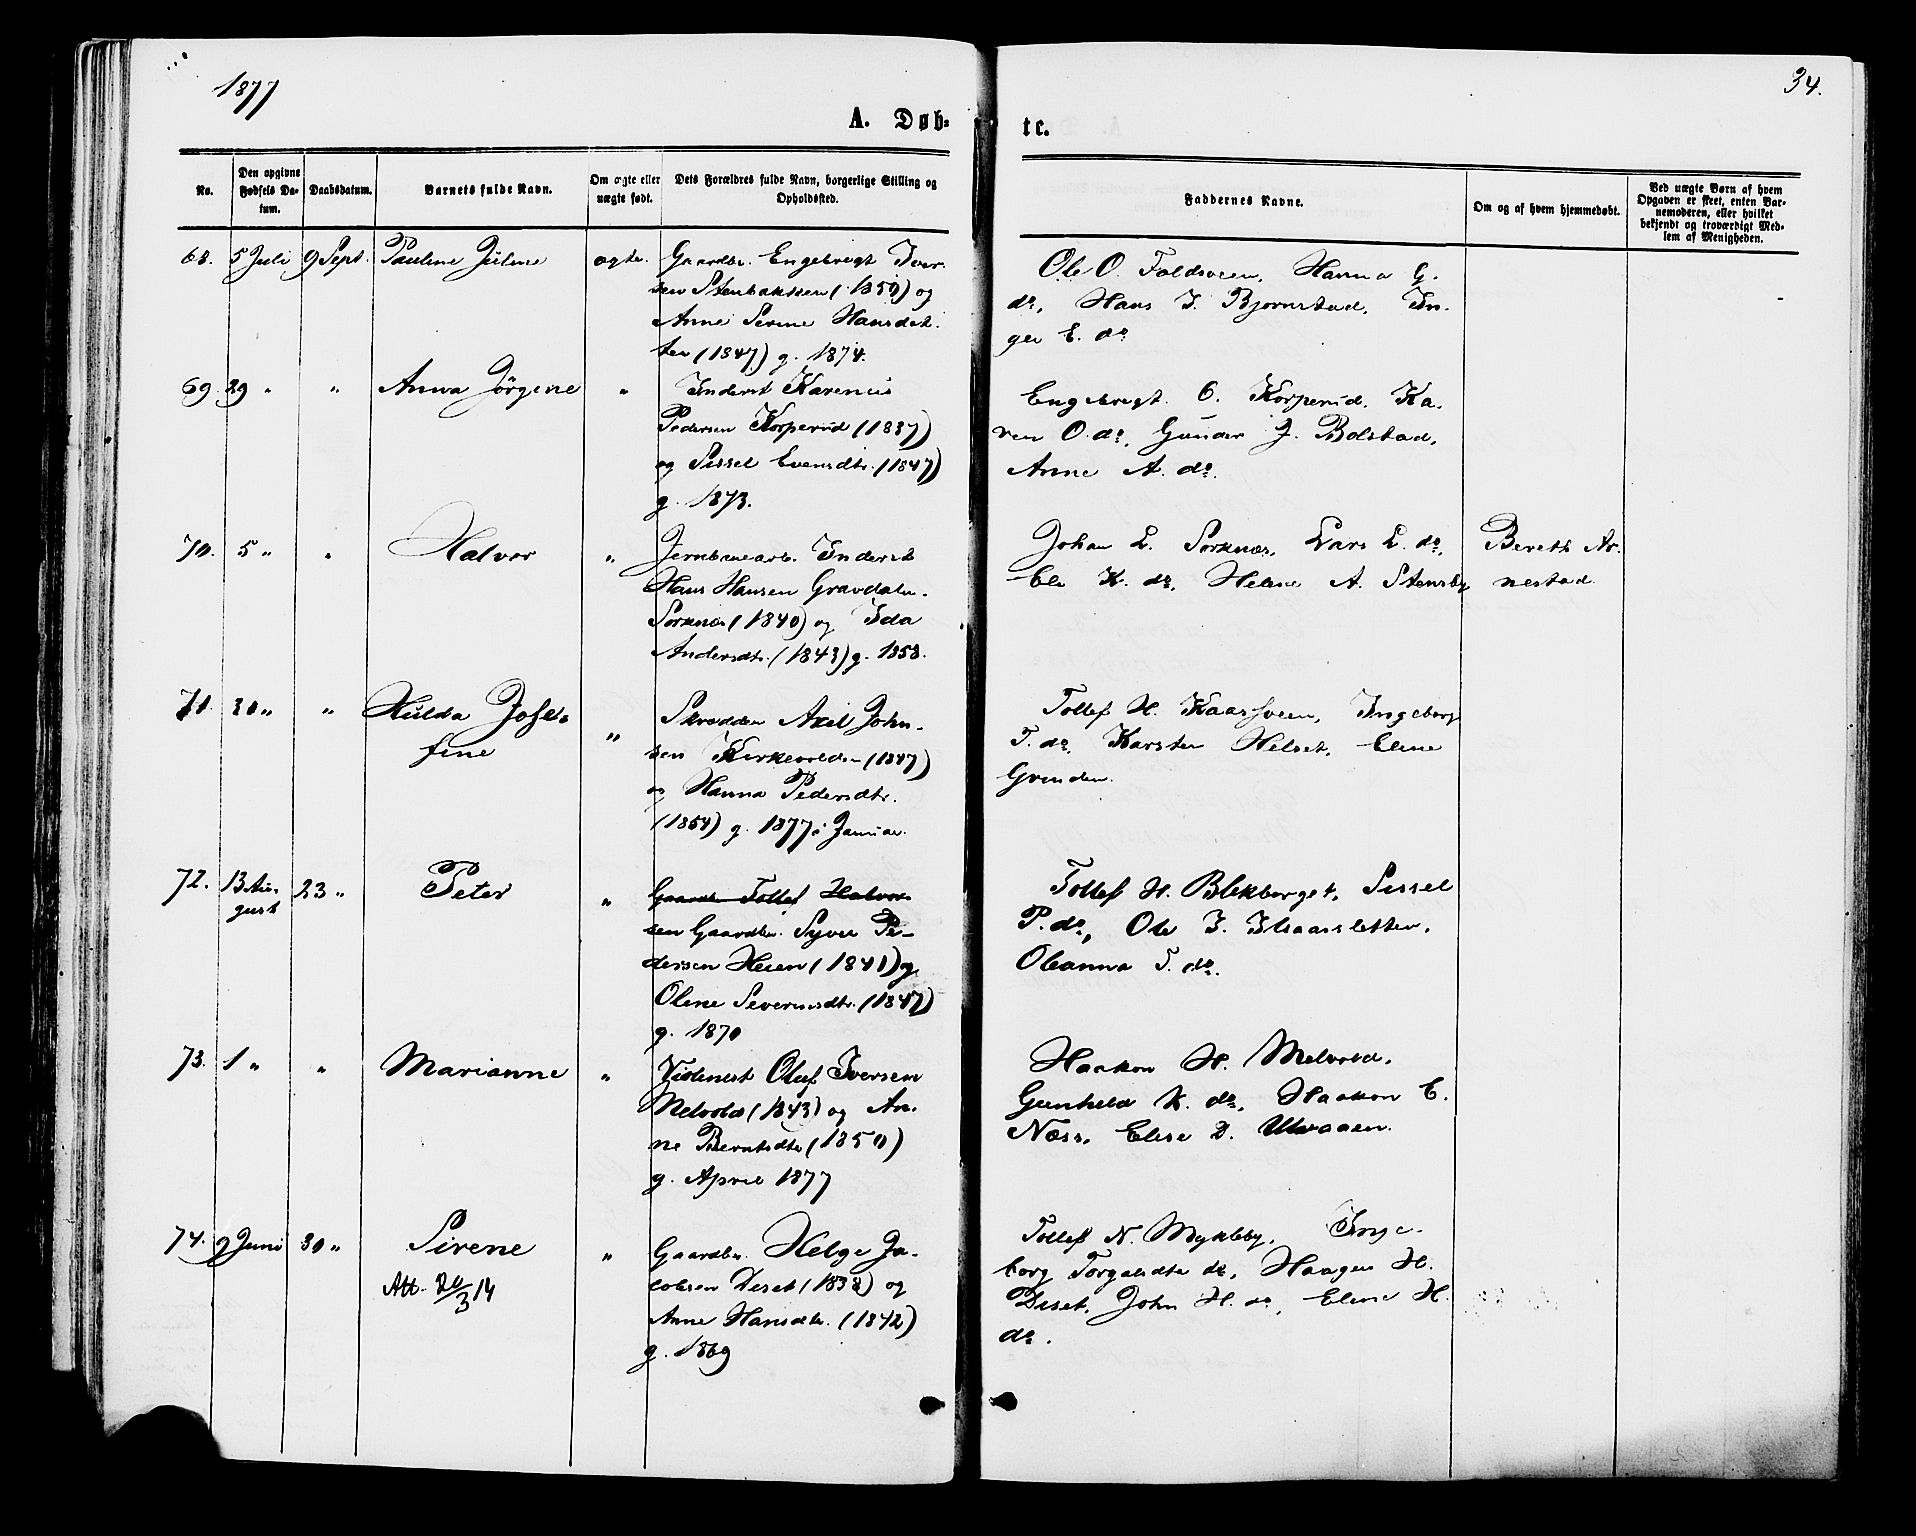 1877
34.
A. Døb-
te.
No.
Den opgivne Fødsels Da-tum.
Daabsdatum.
Barnets fulde Navn.
Om ægte eller uægte født.
Dets Forældres fulde Navn, borgerlige Stilling og Opholdssted.
Faddernes Navne.
Om og af hvem hjemmedøbt.
Ved uægte Børn af hvem Opgaven er skeet, enten Bar-nemoderen, eller hvilket bekjendt og troværdigt Med-lem af Menigheden.
68. 5 Juli 9 Sept. Pauline Juline ægte.
Gaardbr. Engebregt Iver-
sen Stenbakken (1850) og
Anne Serine Hansdat-
ter (1847) g. 1874.
Ole O. Foldsveen, Hanna G.
do, Hans I. Bjørnstad, In-
ger E. do
69. 29 " " Anna Jørgine "
Inderst Karenus
Pedersen Korperud (1837)
og Sissel Evensdtr. (1847)
g. 1873.
Engebregt O. Korperud, Ka-
ren O. do, Gunder J. Bolstad,
Anne A. do.
70. 5 " " Halvor "
Jernbanearb. Inderst
Hans Hansen Gravdalen-
Sorknæs (1840) og Ida
Andersdtr. (1843) g. 1858.
Johan L. Sorknæs, Lars L. do,
Ele K. do, Helene A. Stensby
Bereth Ar-
nestad
71. 30 " " Hulda Jose-
fine "
Skrædder Axel John-
sen Kirkevolden (1847)
og Hanna Pedersdtr.
(1854) g. 1877 i Januar.
Tollef H. Kaassveen, Ingeborg
T. do, Karsten Helset, Eline
Grinden.
72. 13 Au-
gust 23 " Peter "
Gaardbr. Tollef Halvor-
sen Gaardbr. Syver Pe-
dersen Heien (1841) og
Olene Severinsdtr. (1847)
g. 1870
Tollef H. Blekberget, Sissel
P. do, Ole I. Haarsletten,
Oleanna T. do.
73. 1 " " Marianne "
Oluf Iversen
Melvold (1843) og An-
ne Berntsdtr (1850)
g. April 1877
Haakon H. Melvold,
Gunhild K. do, Haakon E.
Næss, Elise D. Ulvaaen.
74. 9 Juni 30 " Sirene "
Att. 20/3 14
Gaardbr. Helge Ja-
cobsen Deset (1838) og
Anne Hansdtr. (1842)
g. 1869
Tollef N. Mykleby, Inge-
borg Torgalsdtr do, Haagen H.
Deset, John H. do, Eline H.
do.